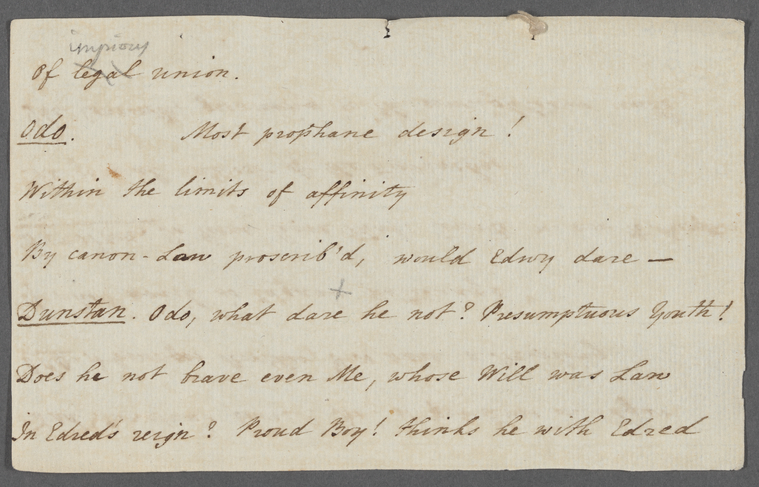 impious
Of legal union.
Odo. Most prophane design!
Within the limits of affinity
By canon-Law proscrib'd, would Edwy dare —
Dunstan. Odo, what dare he not? Presumptuous Youth!
Does he not brave even Me, whose Will was Law
In Edred's reign? Proud Boy! thinks he with Edred